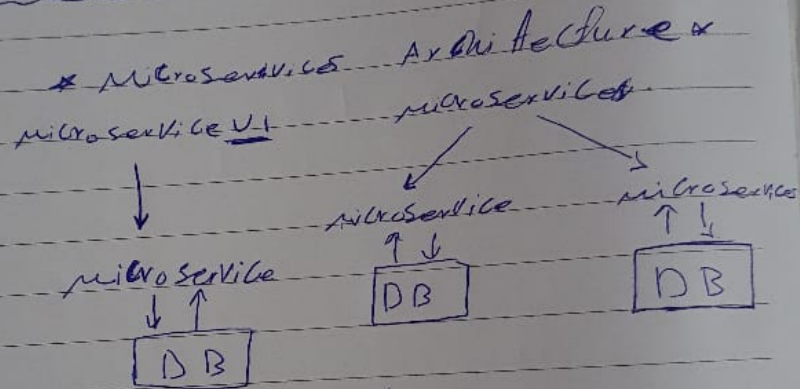 * Microservices Architecture *
Microservice V1 Microservices
Microservice Microservice Microservices
DB DB DB